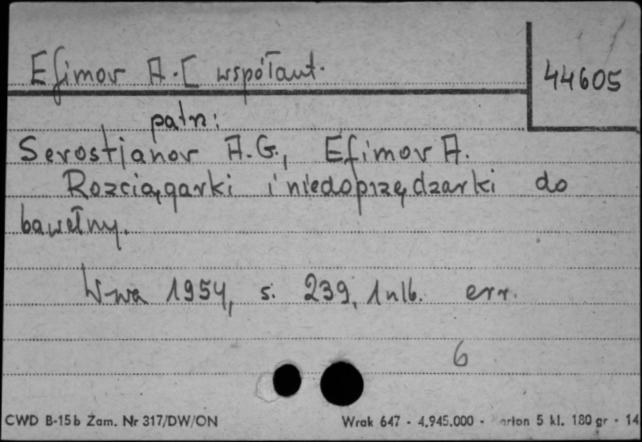 Efimov A. [ współaut.
44605
patrz:
Sevostjanov A.G., Efimov A.
Rozciągarki i niedoprzędzarki do
bawełny.
W-wa 1954, s. 239, 1 nlb. err.
6
CWD B-15b Zam. Nr 317/DW/ON
Wrak 647 - 4.945.000 - 5 kl. 180 gr - 14